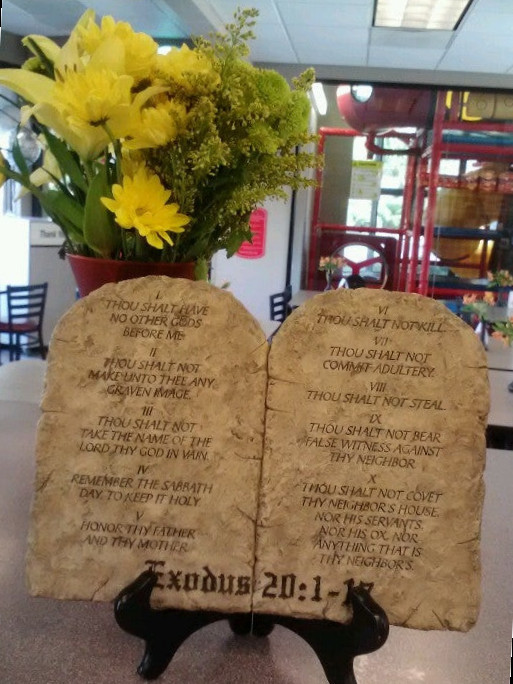 I
THOU SHALT HAVE
NO OTHER GODS
BEFORE ME
II
THOU SHALT NOT
MAKE UNTO THEE ANY
GRAVEN IMAGE
III
THOU SHALT NOT
TAKE THE NAME OF THE
LORD THY GOD IN VAIN.
IV
REMEMBER THE SABBATH
DAY, TO KEEP IT HOLY
V
HONOR THY FATHER
AND THY MOTHER
VI
THOU SHALT NOT KILL
VII
THOU SHALT NOT
COMMIT ADULTERY.
VIII
THOU SHALT NOT STEAL
IX
THOU SHALT NOT BEAR
FALSE WITNESS AGAINST
THY NEIGHBOR
X
THOU SHALT NOT COVET
THY NEIGHBOR'S HOUSE,
NOR HIS SERVANTS,
NOR HIS OX, NOR
ANYTHING THAT IS
THY NEIGHBOR'S.
Exodus 20:1-17
Thank